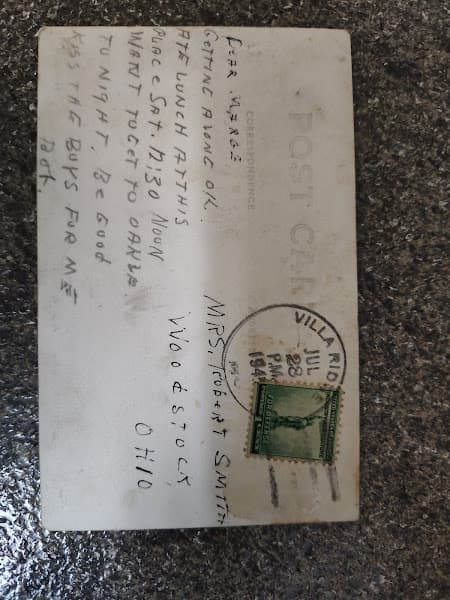 POST CARD
CORRESPONDENCE
DEAR MARGE
GETTING ALONG OK.
ATE LUNCH AT THIS
PLACE SAT. 12:30 NOON
WANT TO GET TO
TO NIGHT. BE GOOD
KISS THE BOYS FOR ME
VILLA RID
JUL
28
PM
194
FOR DEFENSE
MRS. ROBERT SMITH
WOODSTOCK,
OHIO